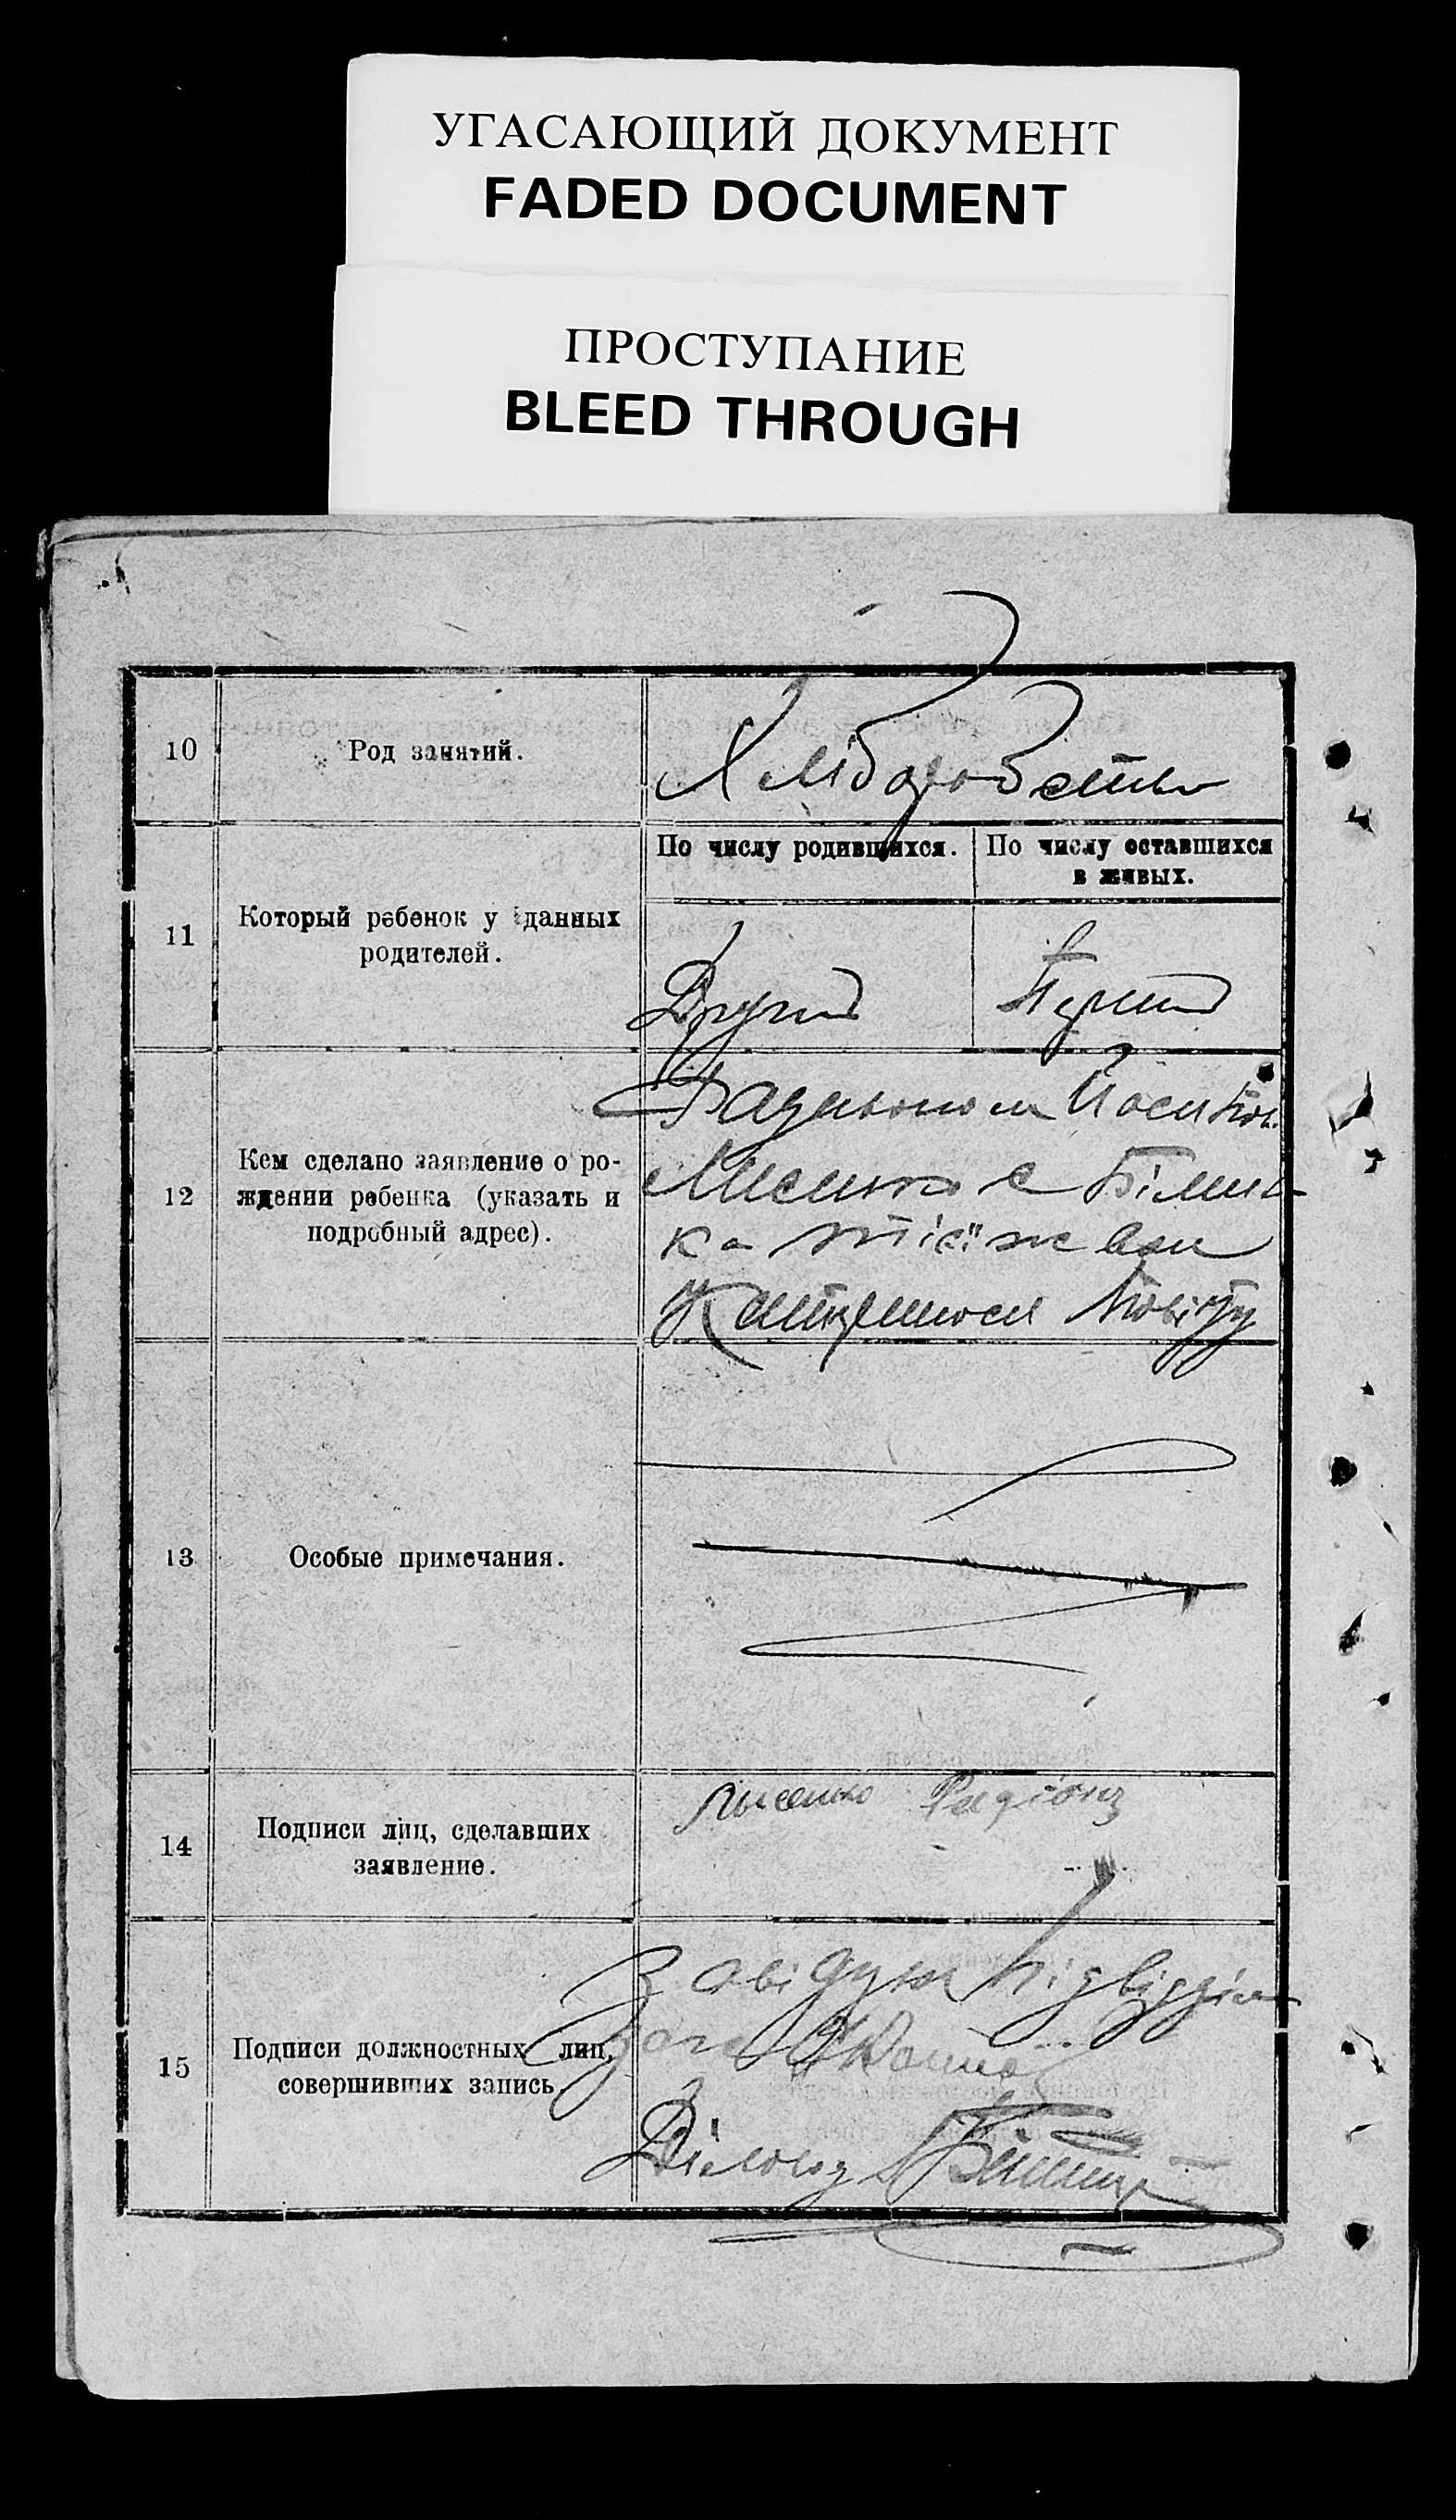 УГАСАЮЩИЙ ДОКУМЕНТ
FADED DOCUMENT
ПРОСТУПАНИЕ
BLEED THROUGH
10
Род занятий.
Хліборобство
11
Который ребенок у данных
родителей.
По числу родившихся.
По числу оставшихся
в живых.
Другий
Перший
12
Кем сделано заявление о ро-
ждении ребенка (указать и
подробный адрес).
Батьком
Лисенко с Білин
ка тієї ж вол
повіту
13
Особые примечания.
14
Подписи лиц, сделавших
заявление.
Лысенко Радіонъ
15
Подписи должностных лиц,
совершивших запись.
Завідуюч підвідділ
Діловод